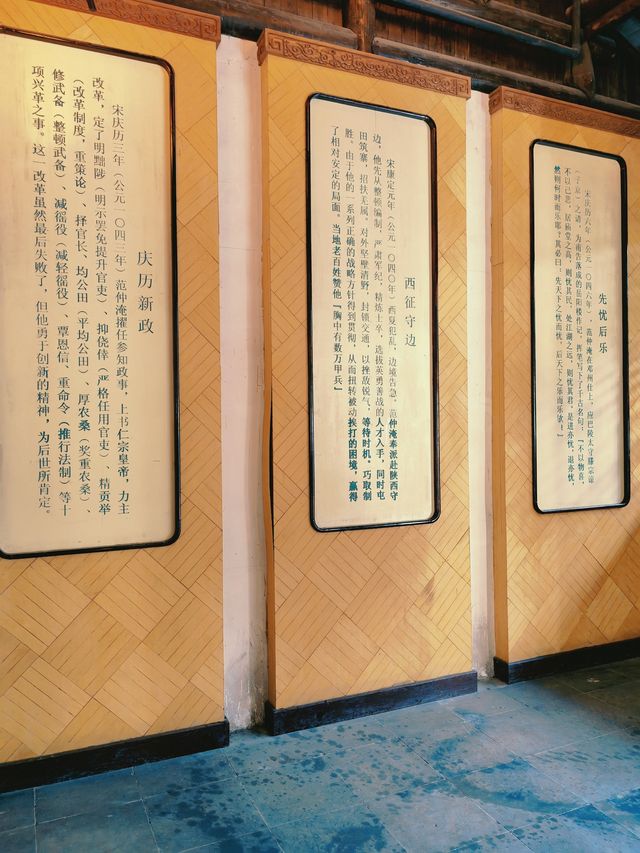 先忧后乐
宋庆历六年（公元一〇四六年），范仲淹在邓州任上，应巴陵太守滕宗谅
（子京）之请，为甫告落成的岳阳楼作记，挥笔写下了千古名句：“不以物喜，
不以己悲，居庙堂之高，则忧其民，处江湖之远，则忧其君，是进亦忧，退亦忧，
然则何时而乐耶？其必曰：先天下之忧而忧，后天下之乐而乐欤。”
西征守边
宋康定元年（公元一〇四〇年）西夏犯乱，边境告急。范仲淹奉派赴陕西守
边，他先从整顿编制，严肃军纪，精炼士卒，选拔英勇善战的人才入手，同时屯
田筑寨，招扶无属。对外坚壁清野，封锁交通，以挫敌锐气，等待时机，巧取制
胜。由于他的一系列正确的战略方针得到贯彻，从而扭转被动挨打的困境，赢得
了相对安定的局面。当地老百姓赞他“胸中有数万甲兵”
庆历新政
宋庆历三年（公元一〇四三年）范仲淹擢任参知政事，上书仁宗皇帝，力主
改革，定了明黜陟（明示罢免提升官吏）、抑侥倖（严格任用官吏）、精贡举
（改革制度，重策论）、择官长、均公田（平均公田）、厚农桑（奖重农桑）、
修武备（整顿武备）、减徭役（减轻徭役）、覃恩信、重命令（推行法制）等十
项兴革之事。这一改革虽然最后失败了，但他勇于创新的精神，为后世所肯定。